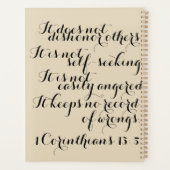 It does not
dishonor others
It is not
self-seeking
It is not
easily angered
It keeps no record
of wrongs
1 Corinthians 13 5